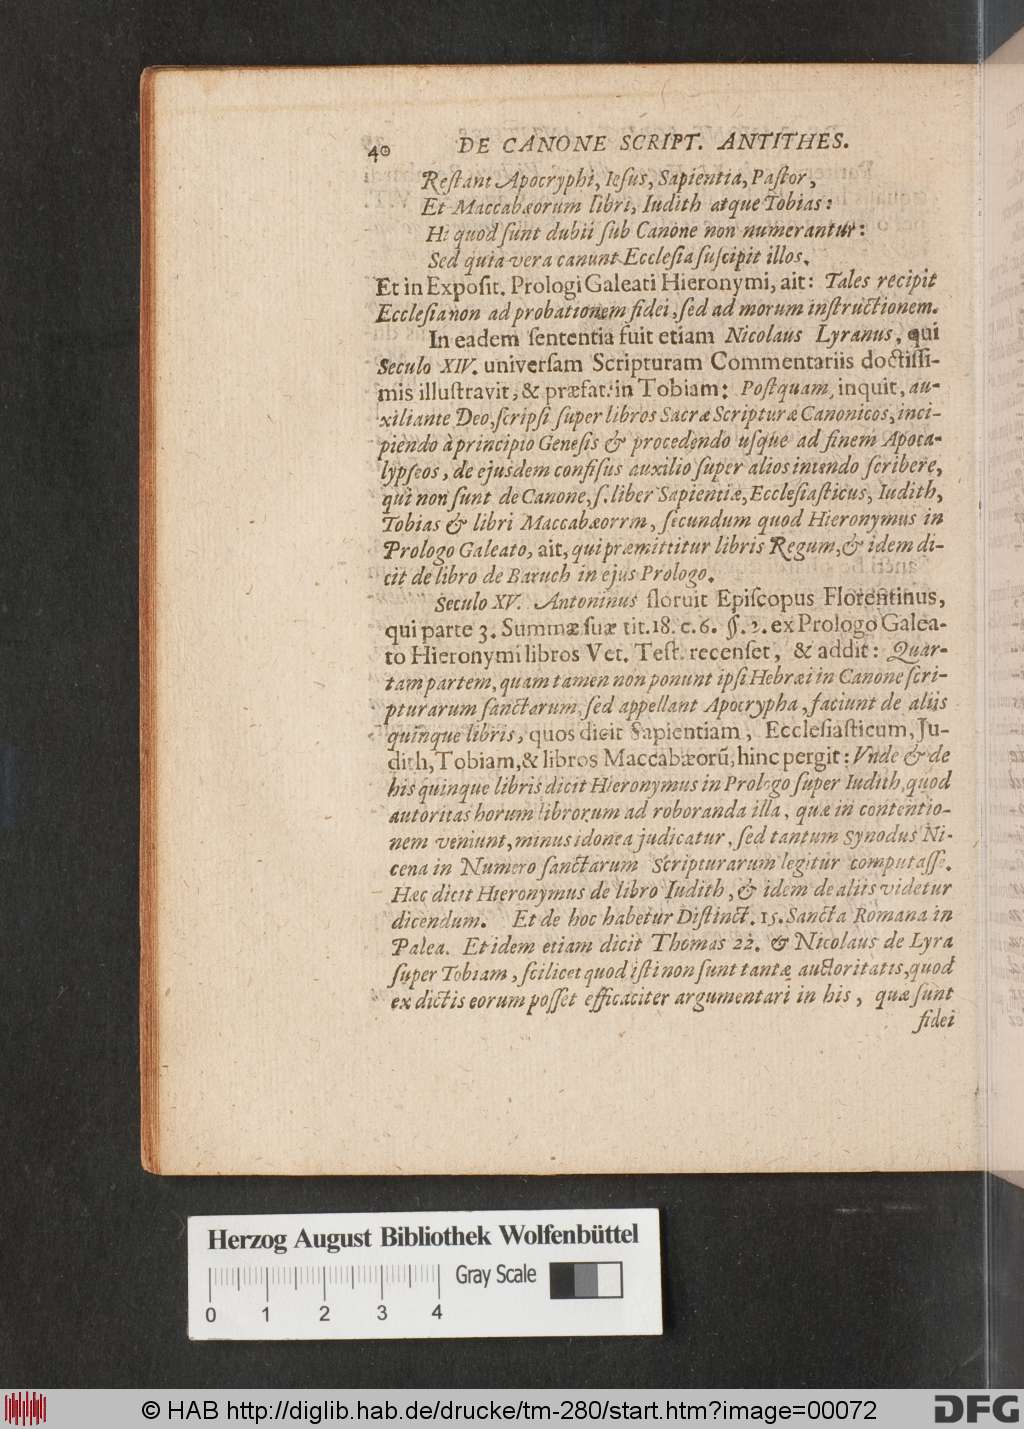 40 DE CANONE SCRIPT. ANTITHES.
Reſtant Apocryphi, Ieſus, Sapientia, Paſtor,
Et Maccabæorum libri, Iudith atque Tobias:
Hi quod ſunt dubii ſub Canone non numerantur:
Sed quia vera canunt Eccleſia ſuſcipit illos.
Et in Expoſit. Prologi Galeati Hieronymi, ait: Tales recipit
Eccleſia non ad probationem fidei, ſed ad morum inſtructionem.
In eadem ſententia fuit etiam Nicolaus Lyranus, qui
Seculo XIV. univerſam Scripturam Commentariis doctiſſi-
mis illuſtravit, & præfat. in Tobiam: Poſtquam, inquit, au-
xiliante Deo, ſcripſi ſuper libros Sacræ Scripturæ Canonicos, inci-
piendo à principio Geneſis & procedendo uſque ad finem Apoca-
lypſeos, de ejusdem confiſus auxilio ſuper alios intendo ſcribere,
qui non ſunt de Canone, ſ. liber Sapientiæ, Eccleſiaſticus, Iudith,
Tobias & libri Maccabæorrm, ſecundum quod Hieronymus in
Prologo Galeato, ait, qui præmittitur libris Regum, & idem di-
cit de libro de Baruch in ejus Prologo.
Seculo XV. Antoninus floruit Epiſcopus Florentinus,
qui parte 3. Summæ ſuæ tit. 18. c. 6. §. 2. ex Prologo Galea-
to Hieronymi libros Vet. Teſt. recenſet, & addit: Quar-
tam partem, quam tamen non ponunt ipſi Hebræi in Canone ſcri-
pturarum ſanctarum, ſed appellant Apocrypha, faciunt de aliis
quinque libris, quos dicit Sapientiam, Eccleſiaſticum, Ju-
dith, Tobiam, & libros Maccabæorũ, hinc pergit: Vnde & de
his quinque libris dicit Hieronymus in Prologo ſuper Iudith, quod
autoritas horum librorum ad roboranda illa, quæ in contentio-
nem veniunt, minus idonea judicatur, ſed tantum Synodus Ni-
cena in Numero ſanctarum Scripturarum legitur computaſſe.
Hæc dicit Hieronymus de libro Iudith, & idem de aliis videtur
dicendum. Et de hoc habetur Diſtinct. 15. Sancta Romana in
Palea. Et idem etiam dicit Thomas 22. & Nicolaus de Lyra
ſuper Tobiam, ſcilicet quod iſti non ſunt tantæ auctoritatis, quod
ex dictis eorum poſſet efficaciter argumentari in his, quæ ſunt
fidei
Herzog August Bibliothek Wolfenbüttel
Gray Scale
0 1 2 3 4
© HAB http://diglib.hab.de/drucke/tm-280/start.htm?image=00072
DFG